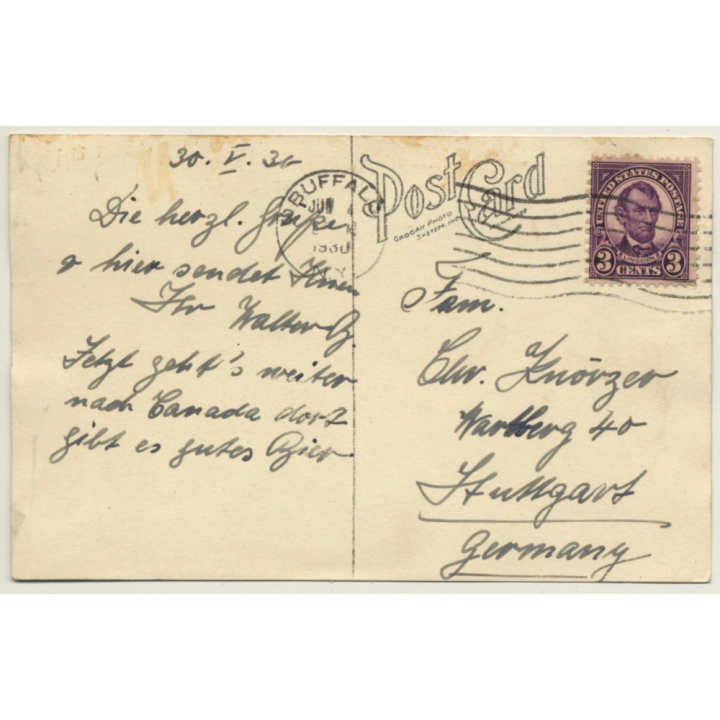 30. V. 30
Die herzl. Grüße
v hier sendet Ihnen
Ihr Walter G.
Jetzt geht's weiter
nach Canada dort
gibt es gutes Bier.
BUFFALO
JUN
1930
N.Y.
Post Card
GROGAN PHOTO
SYSTEM, INC.
UNITED STATES POSTAGE
LINCOLN
3 CENTS 3
Fam.
Chr. Knörzer
Wartberg 40
Stuttgart
Germany